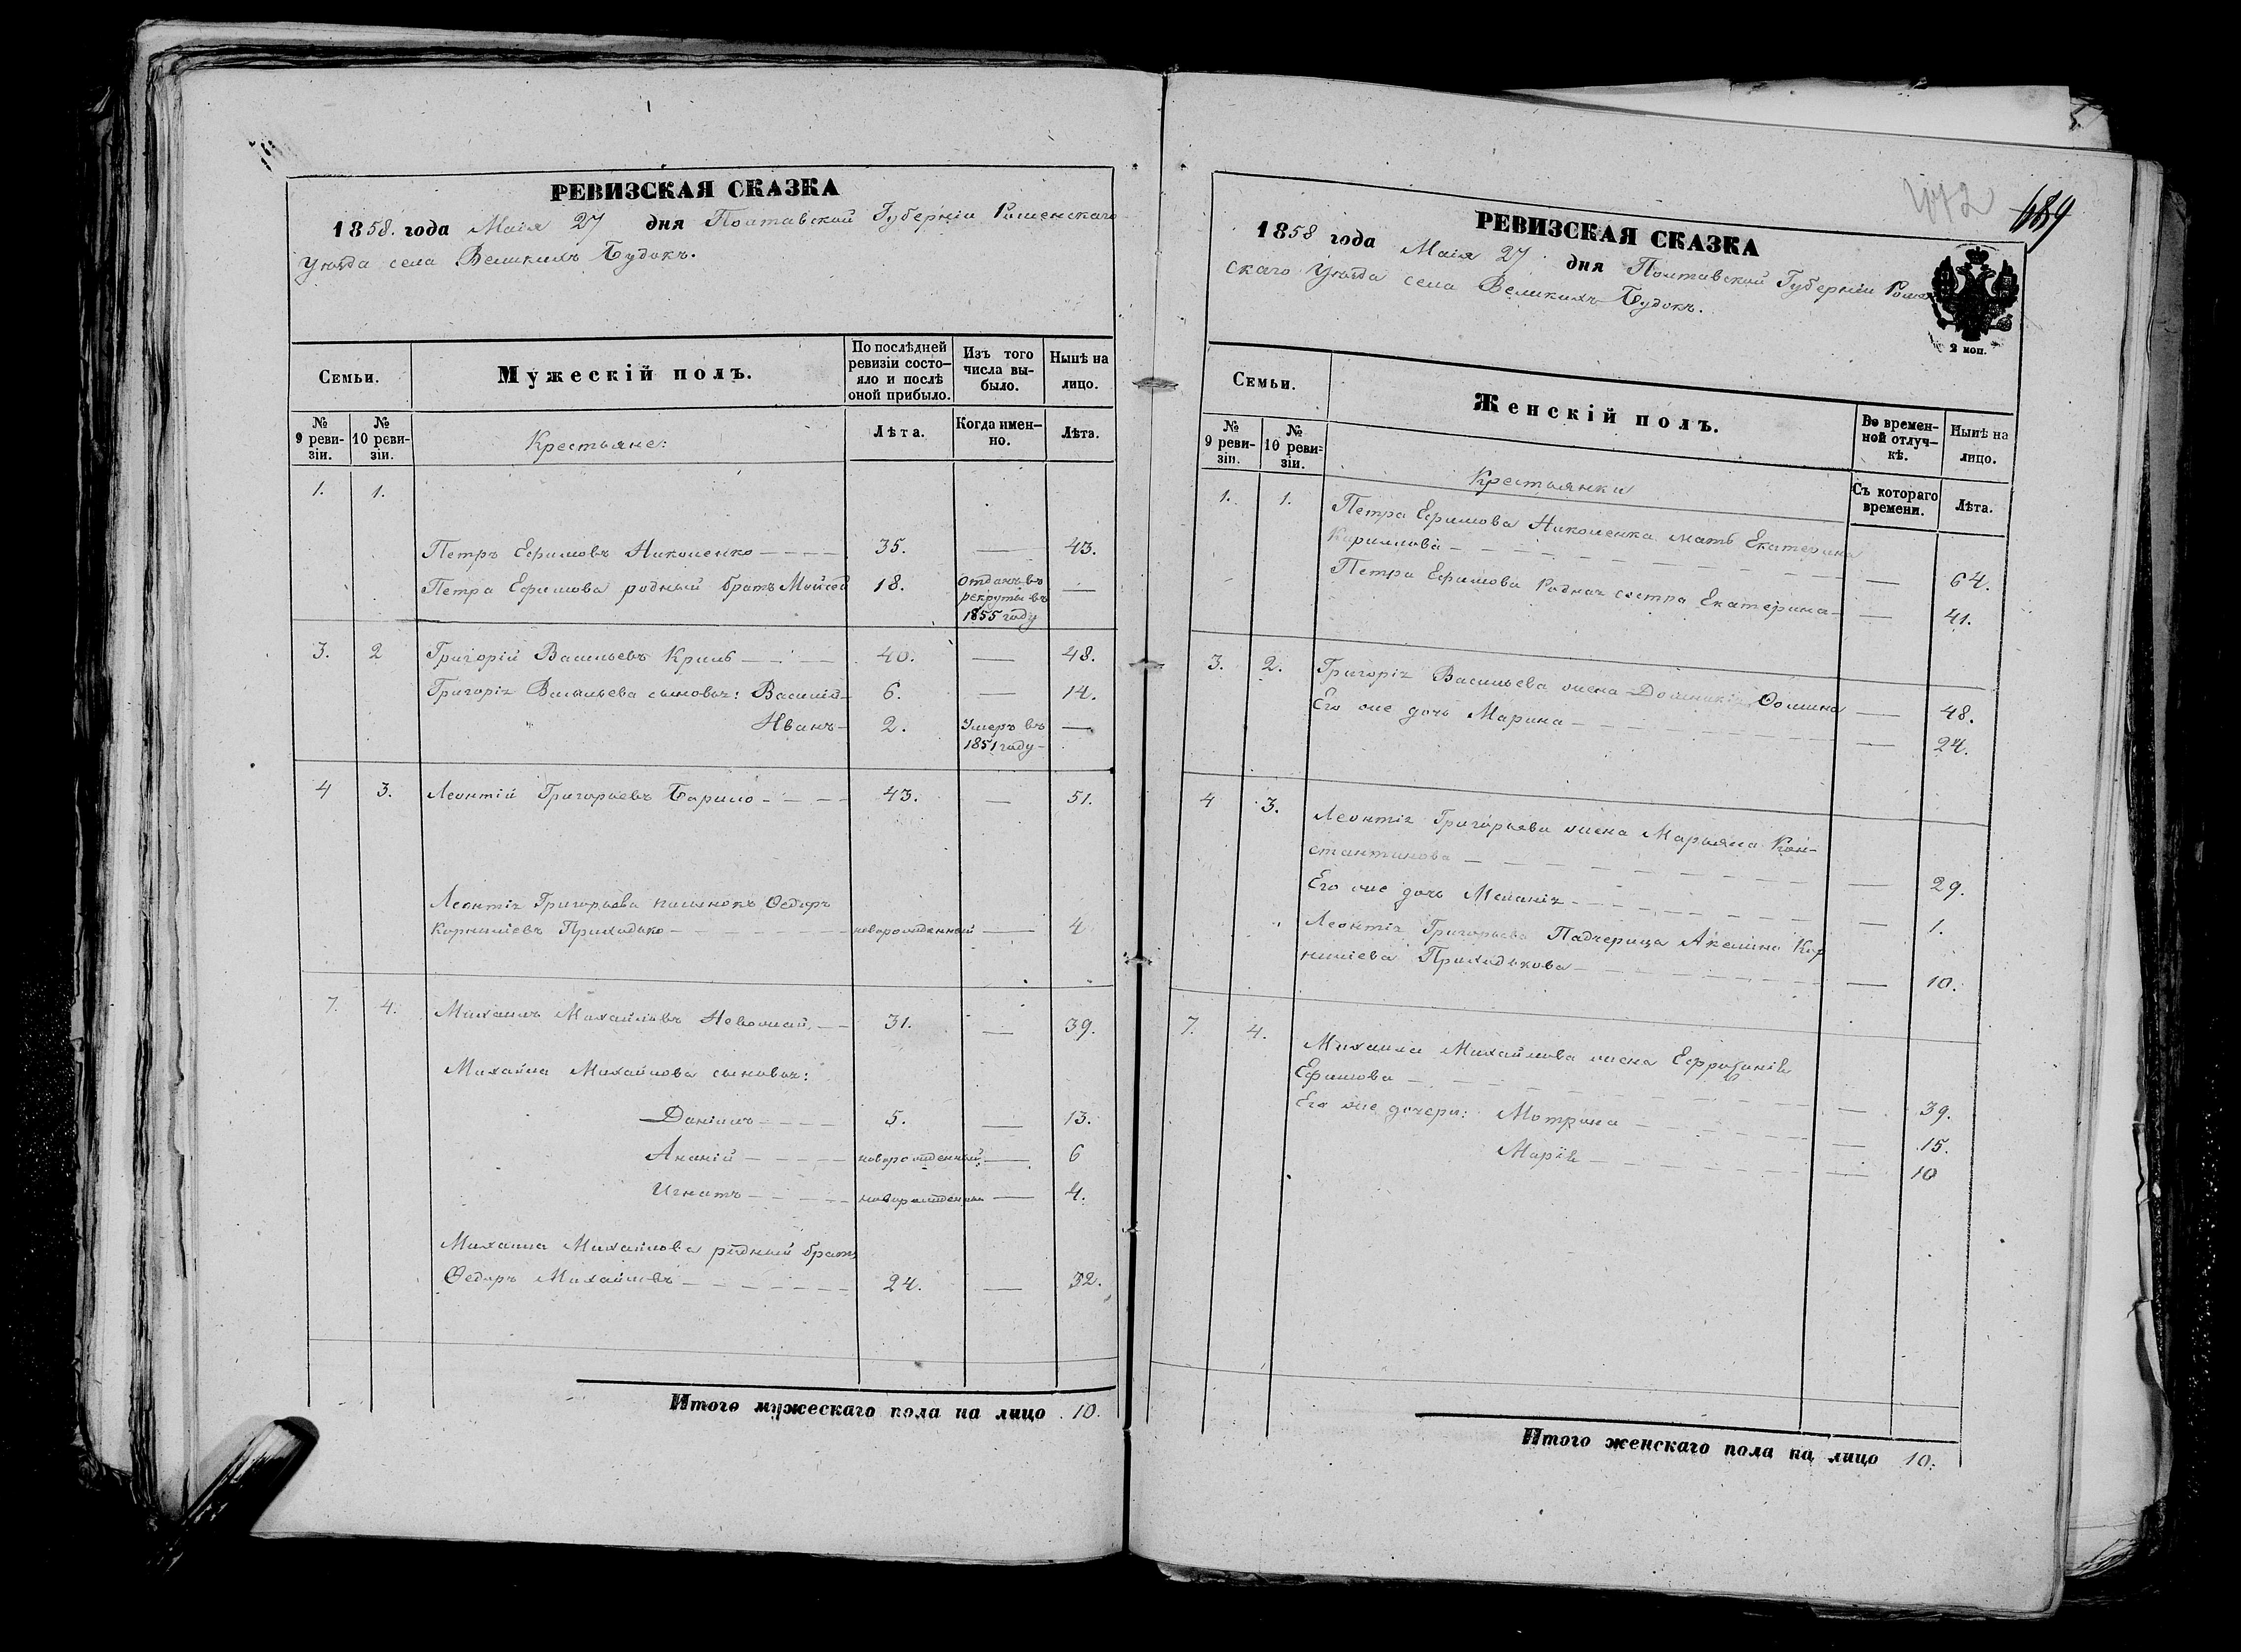 РЕВИЗСКАЯ СКАЗКА
1858. года Маія 27 дня Полтавской Губерніи Роменскаго
Уѣзда села Великихъ Будокъ.
Семьи.
Мужескій полъ.
По послѣдней ревизіи состо-
яло и послѣ
оной прибыло.
Изъ того числа вы-
было.
Нынѣ на лицо.
№ 9 реви-
зіи.
№ 10 реви-
зіи.
Крестьяне:
Лѣта.
Когда имен-
но.
Лѣта.
1. 1.
Петръ Ефимовъ Николенко 35. — 43.
Петра Ефимова родный братъ Мойсей 18. отданъ въ рекруты въ 1855 году —
3. 2 Григорій Васильевъ Криль 40. — 48.
Григорія Васильева сыновья: Василій 6. — 14.
Иванъ 2. Умеръ въ 1851 году —
4 3. Леонтій Григорьевъ 43. — 51.
Леонтія Григорьева пасынокъ Ѳедоръ
Корниліевъ Приходько новорожденный — 4
7. 4. Михаилъ Михайловъ 31. — 39.
Михаила Михайлова сыновья:
Даніилъ 5. — 13.
Ананій новорожденный — 6
Игнатъ новорожденный — 4.
Михаила Михайлова родный братъ
Ѳедоръ Михайловъ 24. — 32.
Итого мужескаго пола на лицо 10.
689
РЕВИЗСКАЯ СКАЗКА
1858 года Маія 27 дня Полтавской Губерніи Ромен
скаго Уѣзда села Великихъ Будокъ.
2 коп.
Семьи.
Женскій полъ.
Во времен-
ной отлуч-
кѣ.
Нынѣ на лицо.
№ 9 реви-
зіи.
№ 10 реви-
зіи.
Крестьянки
Съ котораго времени.
Лѣта.
1. 1. Петра Ефимова Николенка мать Екатерина
Кириллова — 64.
Петра Ефимова Родная сестра Екатерина — 41.
3. 2. Григорія Васильева жена Ѳомина — 48.
Его же дочь Марина — 24.
4 3. Леонтія Григорьева жена Марьяна Кон-
стантинова — 29.
Его же дочь Меланія — 1.
Леонтія Григорьева Падчерица Акелина Кор
ниліева Приходькова — 10.
7. 4. Михаила Михайлова жена Ефросинія
Ефимова — 39.
Его же дочери: Мотрина — 15.
Марія — 10
Итого женскаго пола на лицо 10.